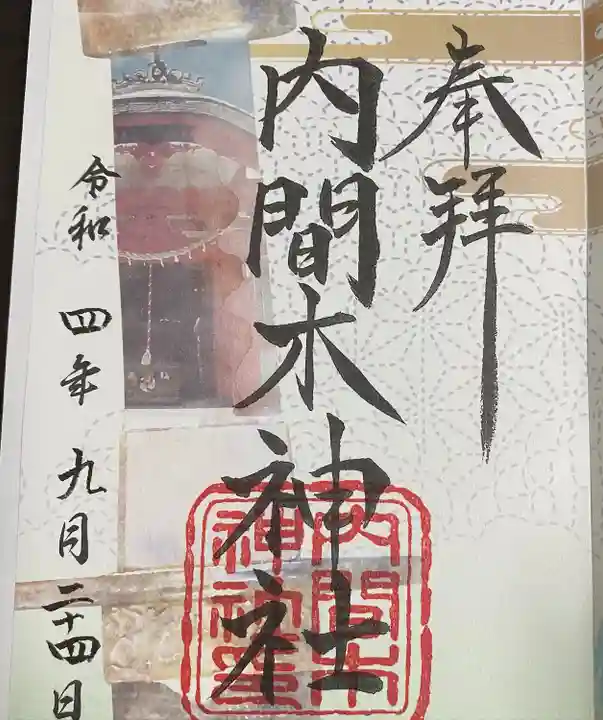 奉拝
内間木神社
令和四年九月二十四日
内間木
神社